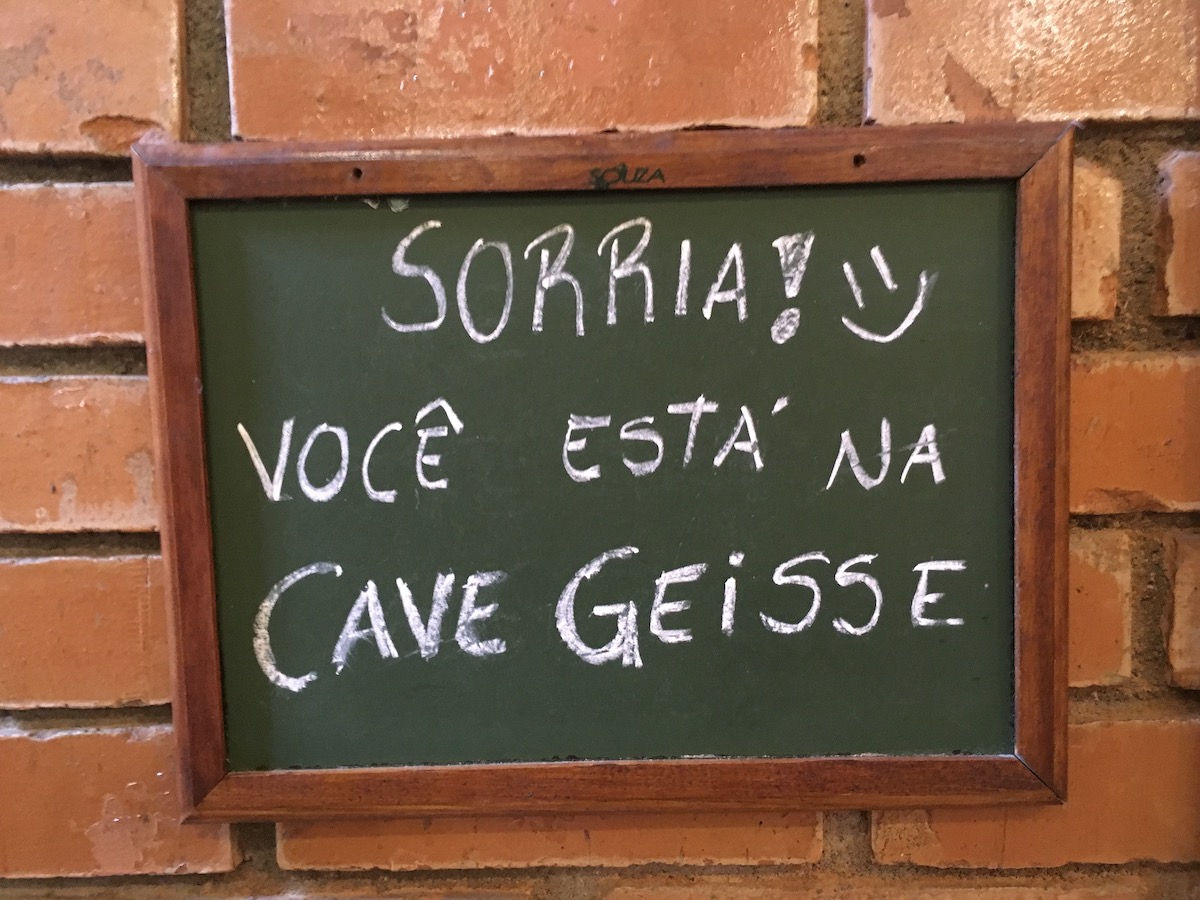 SOUZA
SORRIA! :)
VOCÊ ESTÁ NA
CAVE GEiSSE